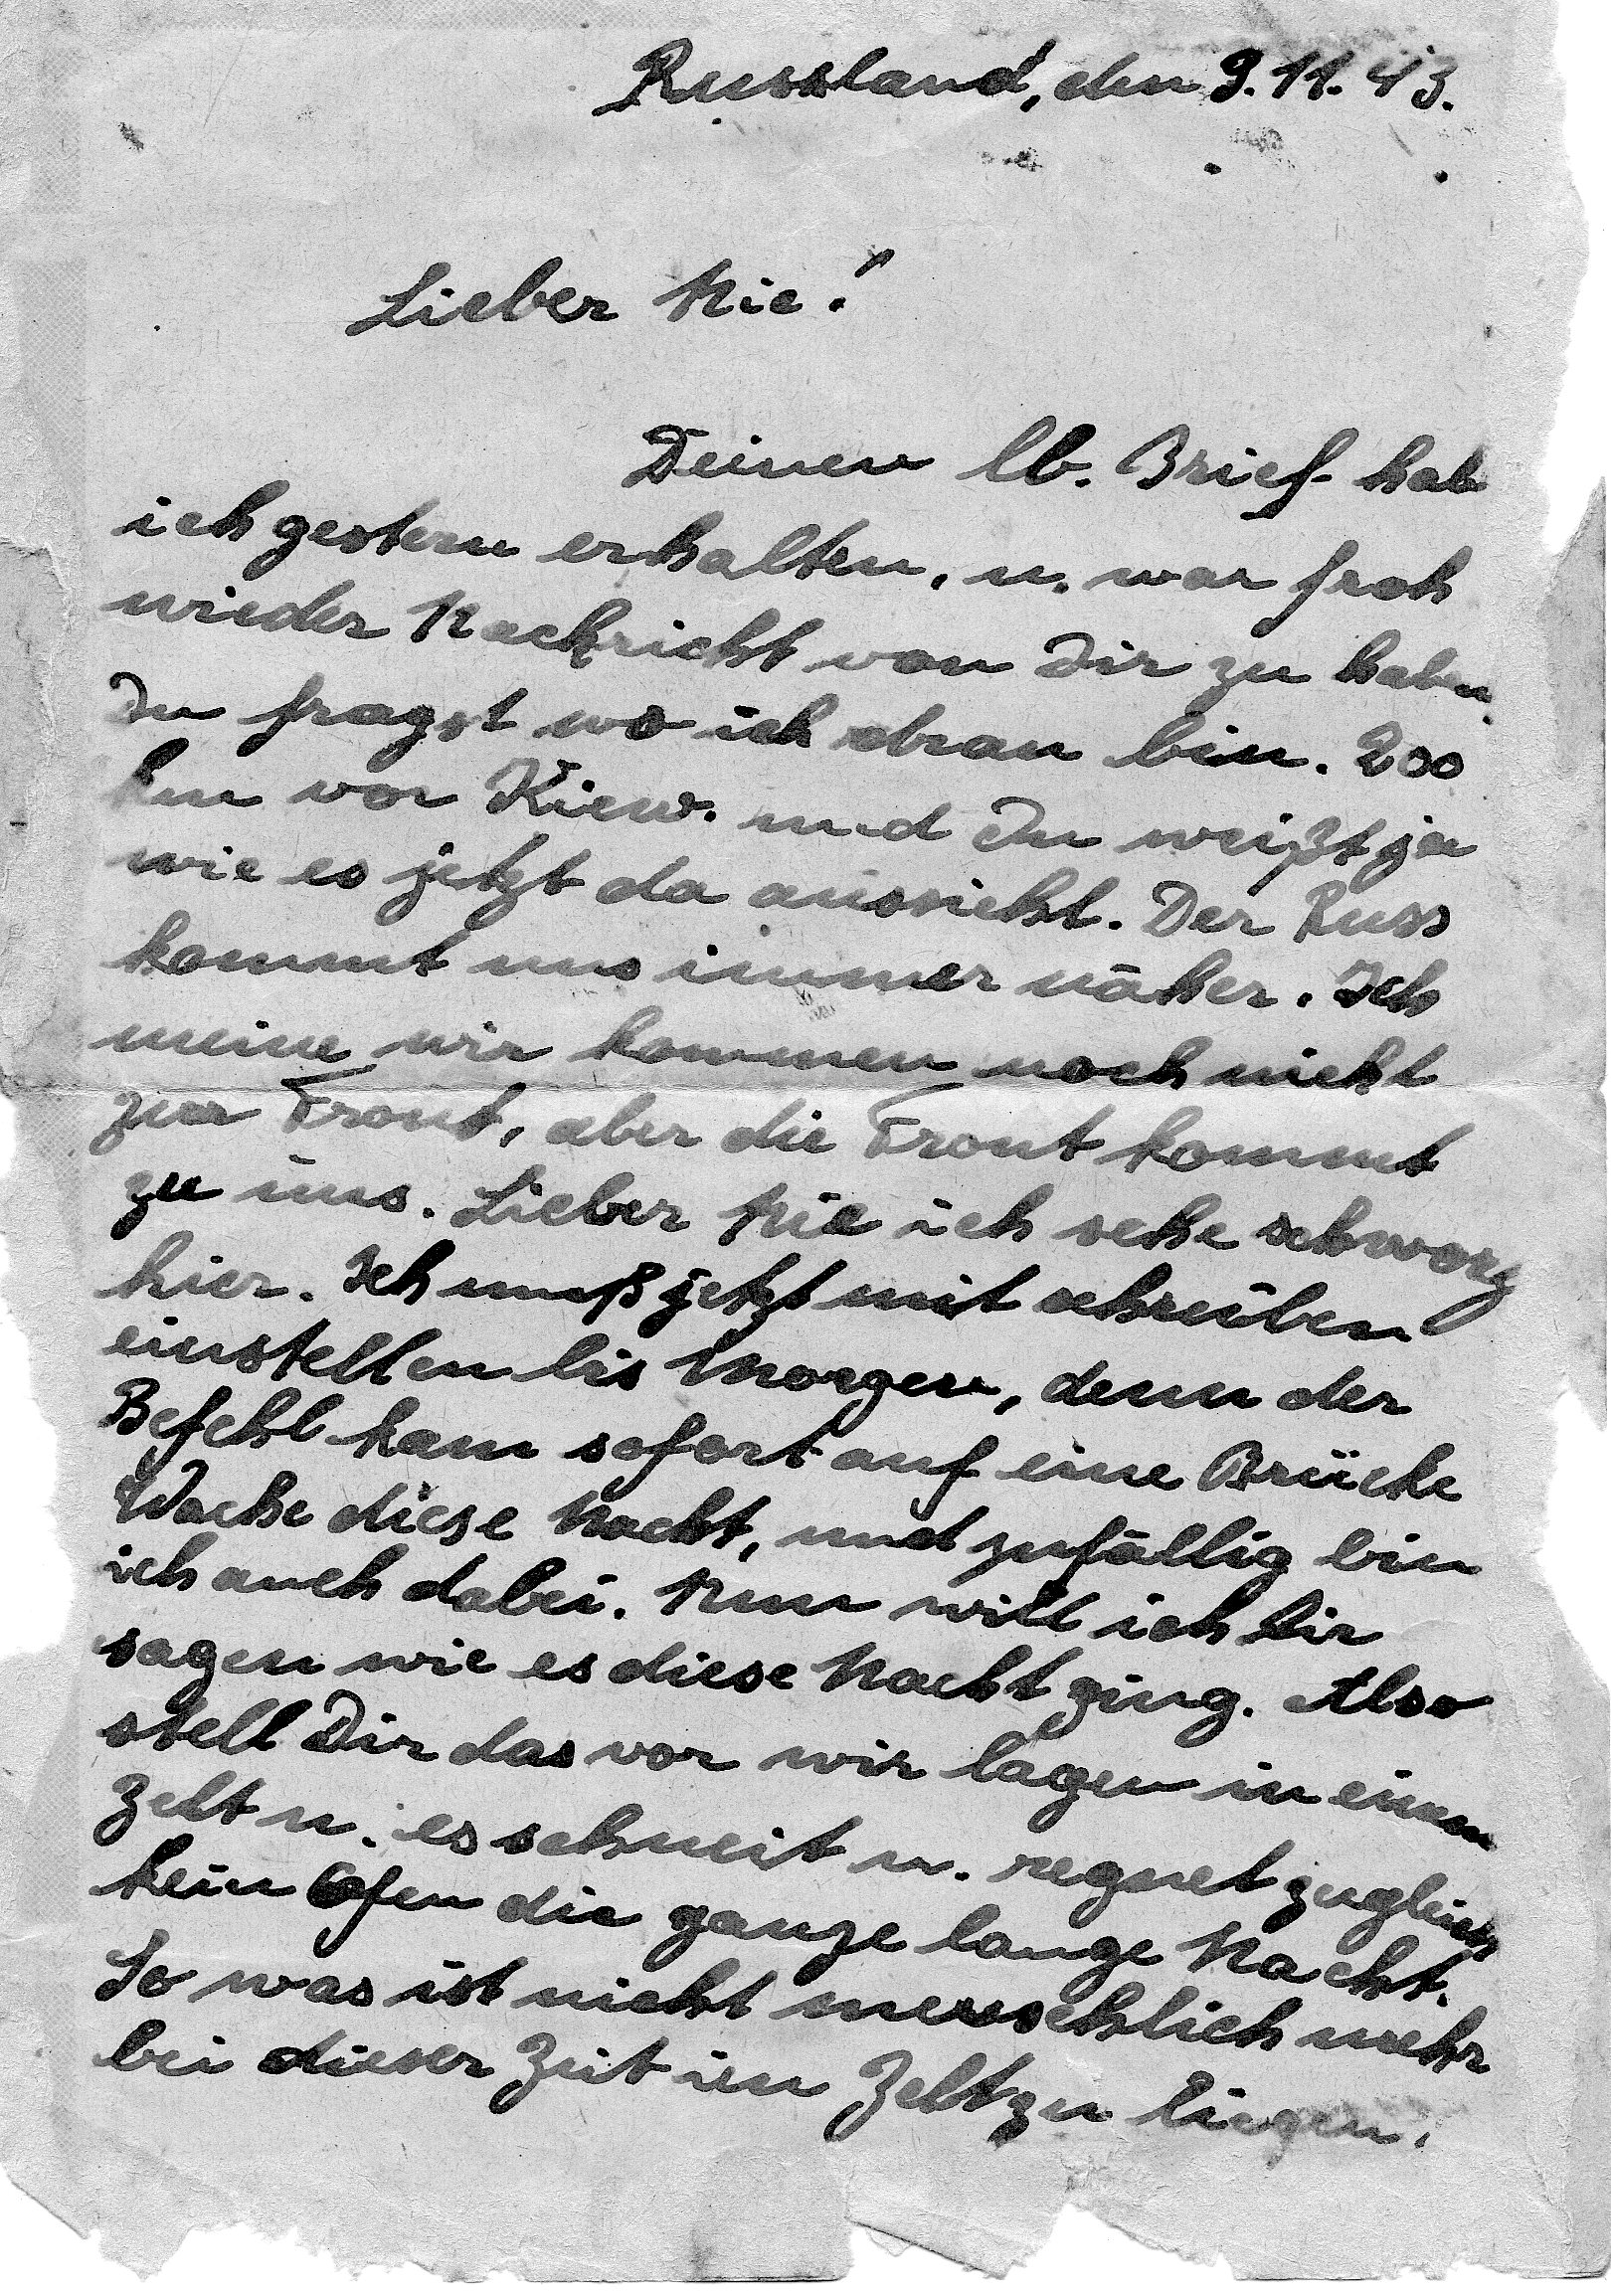 Russland, den 9.11.43.
Lieber Nic!
Deinen lb. Brief hab
ich gestern erhalten, u. war froh
wieder Nachricht von Dir zu haben.
Du fragst wo ich dran bin. 200
km vor Kiew. und Du weißt ja
wie es jetzt da aussieht. Der Russ
kommt uns immer näher. Ich
meine wir kommen noch nicht
zur Front, aber die Front kommt
zu uns. Lieber Nic ich sehe schwarz
hier. Ich muß jetzt mit schreiben
einstellen bis Morgen, denn der
Befehl kam sofort auf eine Brücke
Wache diese Nacht, und zufällig bin
ich auch dabei. Nun will ich Dir
sagen wie es diese Nacht ging. Also
stell Dir das vor wir lagen in einem
Zelt u. es schneit u. regnet zugleich
kein Ofen die ganze lange Nacht.
So was ist nicht menschlich mehr
bei dieser Zeit im Zelt zu liegen.